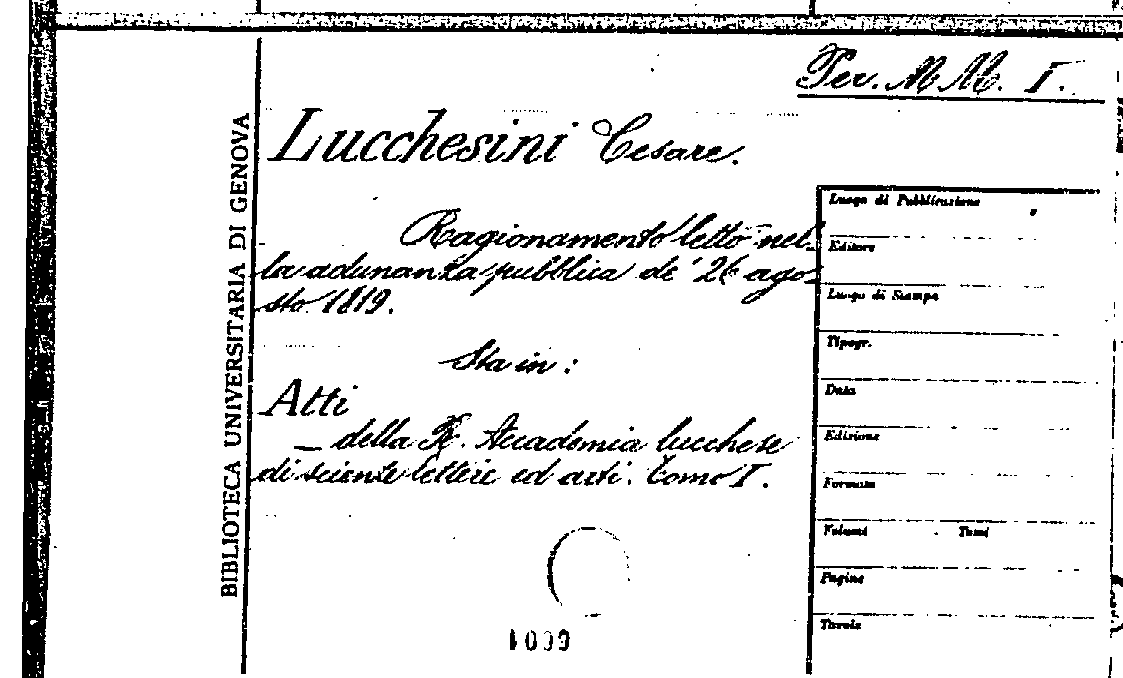 Per. M M. I.
Lucchesini Cesare.
Ragionamento letto nel-
la adunanza pubblica de' 26 ago-
sto 1819.
Sta in:
Atti
_ della R. Accademia lucchese
di scienze lettere ed arti. Tomo I.
BIBLIOTECA UNIVERSITARIA DI GENOVA
Luogo di Pubblicazione
Editore
Luogo di Stampa
Tipogr.
Data
Edizione
Formato
Volumi Tomi
Pagine
Tavole